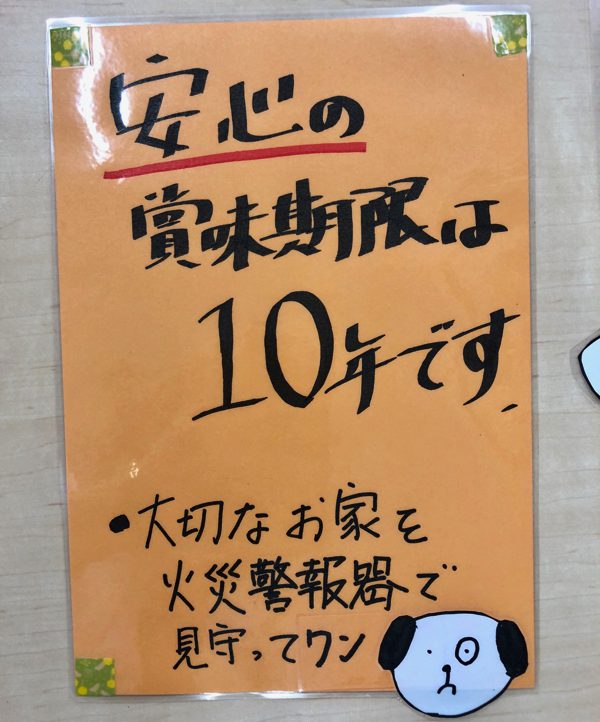 安心の
賞味期限は
10年です.
•大切なお家を
火災警報器で
見守ってワン